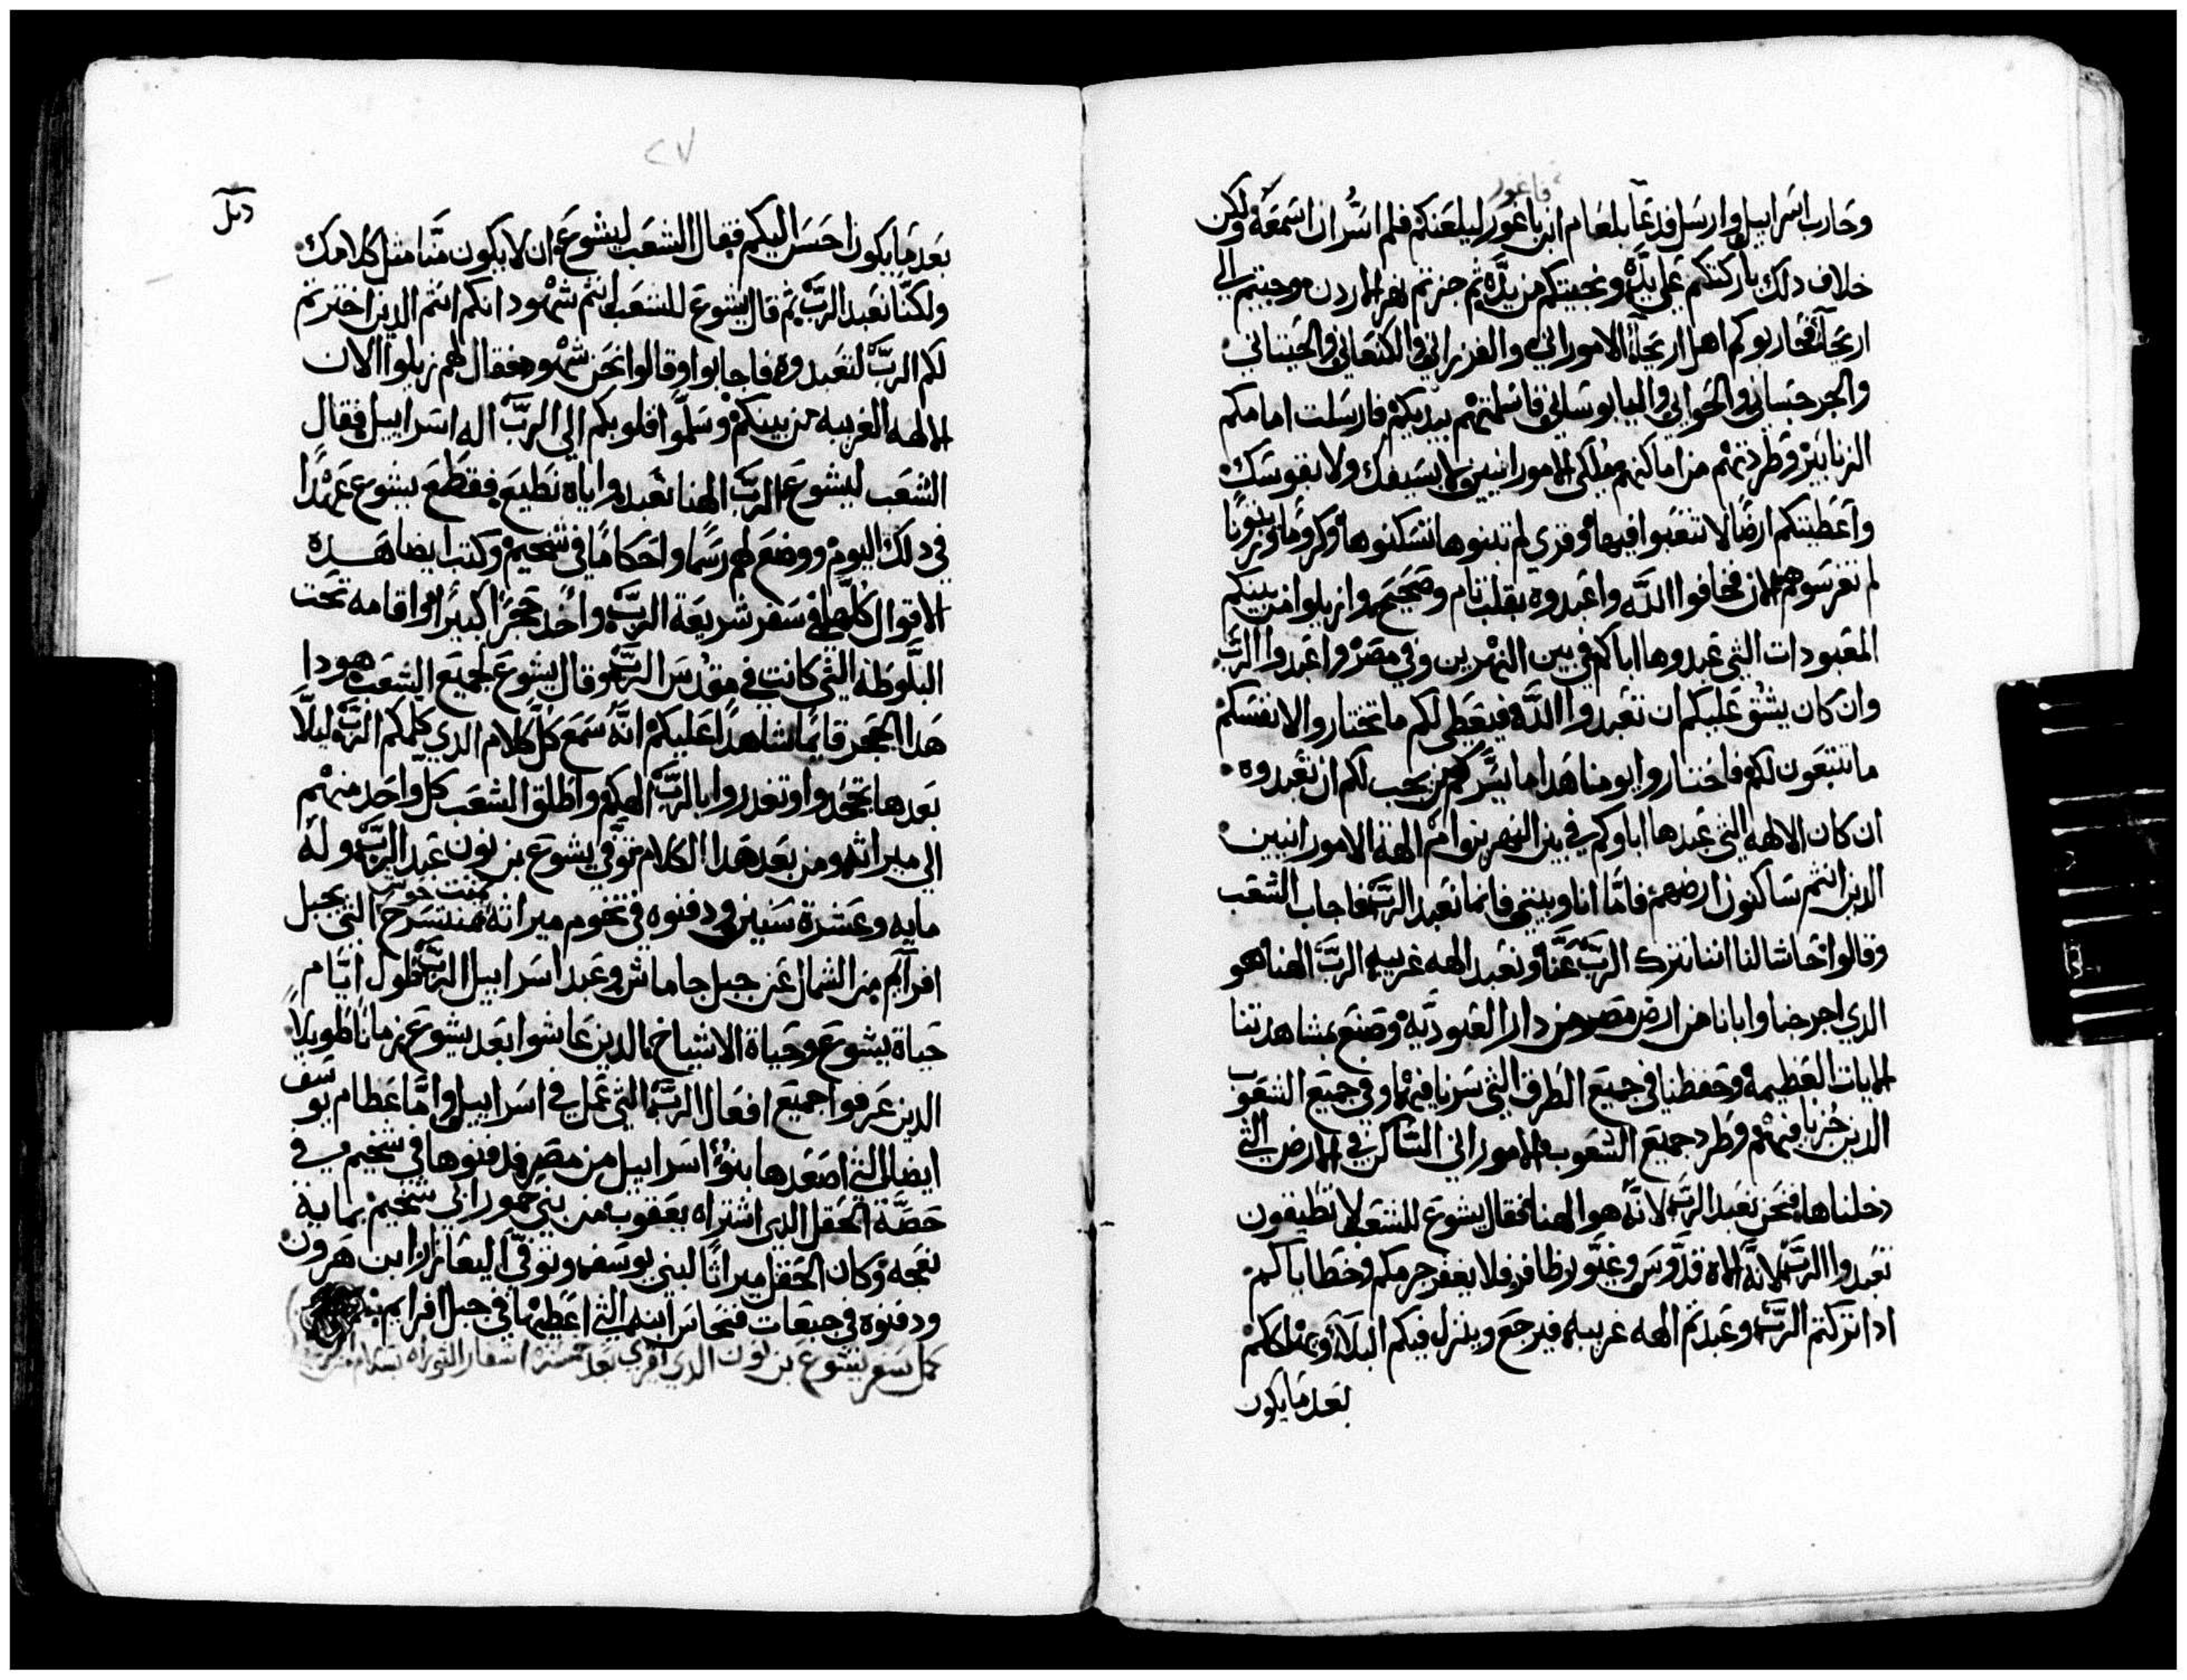 فاغور
وحارب اسراييل وارسل فدعا بلعام ابن باعور ليلعنكم فلم اسر ان اسمعه ولكن
خلاف دلك باركتكم علي يده ونجيتكم من يده ثم جزتم نهر الاردن وجيتم الي
اريحا فحاربوكم اهل اريحا الاموراني والفرزاني والكنعاني والحيتاني
والجرجساني والحواني واليابوساني فاسلمتهم بيديكم فارسلت امامكم
الزنابير وطردتهم من اماكنهم ملكي الامورانيين لا بسيفك ولا بقوسك
واعطيتكم ارضا لا تتعبوا فيها وقري لم تبنوها تسكنوها وكروما وزيتونا
لم تغرسوهم الان فخافوا الله واعبدوه بقلب تام وصحيح وازيلوا من بينكم
المعبودات التي عبدوها اباكم في بين النهرين وفي مصر واعبدوا الرب
وان كان يشق عليكم ان تعبدوا الله فيعطي لكم ما تختاروا لانفسكم
ما تتبعون لكم فاختاروا يومنا هدا ما يسركم من يجب لكم ان تعبدوه
ان كان الالهه التي عبدها اباوكم في بين النهرين وام الهة الامورانيين
الدين انتم ساكنون ارضهم فاما انا وبيتي فانما نعبد الرب فاجاب الشعب
وقالوا حاشا لنا اننا نترك الرب عنا ونعبد الهه غريبه الرب الهنا هو
الدي اخرجنا وابانا من ارض مصر من دار العبوديه وصنع بمشاهدتنا
الايات العظيمه وحفظنا في جميع الطرق التي سرنا فيها وفي جميع الشعوب
الدين جزنا فيهم وطرد جميع الشعوب والاموراني الساكن في الارض التي
دخلناها فنحن نعبد الرب لانه هو الهنا فقال يشوع للشعب لا تطيقون
تعبدوا الرب لانه الاه قدوس وغيور ظافر فلا يغفر جرمكم وخطاياكم
ادا تركتم الرب وعبدتم الهه غريبه فيرجع وينزل فيكم البلا ويهلككم
بعد ما يكون
٢٧
بعد ما يكون احسن اليكم فقال الشعب ليشوع ان لا يكون منا مثل كلامك
ولكنا نعبد الرب ثم قال يشوع للشعب انتم شهود انكم انتم الدين اخترتم
لكم الرب لتعبدوه فاجابوا وقالوا نحن شهود فقال لهم زيلوا الان
الالهه الغريبه من بينكم وسلموا قلوبكم الي الرب اله اسراييل فقال
الشعب ليشوع الرب الهنا نعبد واياه نطيع فقطع يشوع عهدا
في دلك اليوم ووضع لهم رسما واحكاما في شخيم وكتب ايضا هده
الاقوال كلها في سفر شريعة الرب واخد حجرا كبيرا واقامه تحت
البلوطه التي كانت في مقدس الرب وقال يشوع لجميع الشعب هودا
هدا الحجر قايما شاهدا عليكم انه سمع كل كلام الدي كلمكم الرب ليلا
بعدها تجحدوا وتغدروا بالرب الهكم واطلق الشعب كل واحد منهم
الي ميراثه ومن بعد هدا الكلام توفي يشوع بن نون عبد الرب وله
مايه وعشرة سنين ودفنوه في تخوم ميراثه تمنتسرح التي بجبل
افرايم من الشمال عن جبل جاماش وعبد اسراييل الرب طول ايام
حياة يشوع وحياة الاشياخ الدين عاشوا بعد يشوع زمانا طويلا
الدين عرفوا جميع افعال الرب التي عمل في اسراييل واما عظام يوسف
ايضا التي اصعدها بنو اسراييل من مصر فدفنوها في شخيم في
حصة الحقل الدي اشتراه يعقوب من بني حموراني شخيم بماية
نعجه وكان الحقل ميراثا لبني يوسف وتوفي اليعازار ابن هرون
ودفنوه في جبعات فنحاس ابنه التي اعطيها في جبل افرايم
كمل سفر يشوع بن نون الدي بعد اسفار التوراه بسلام